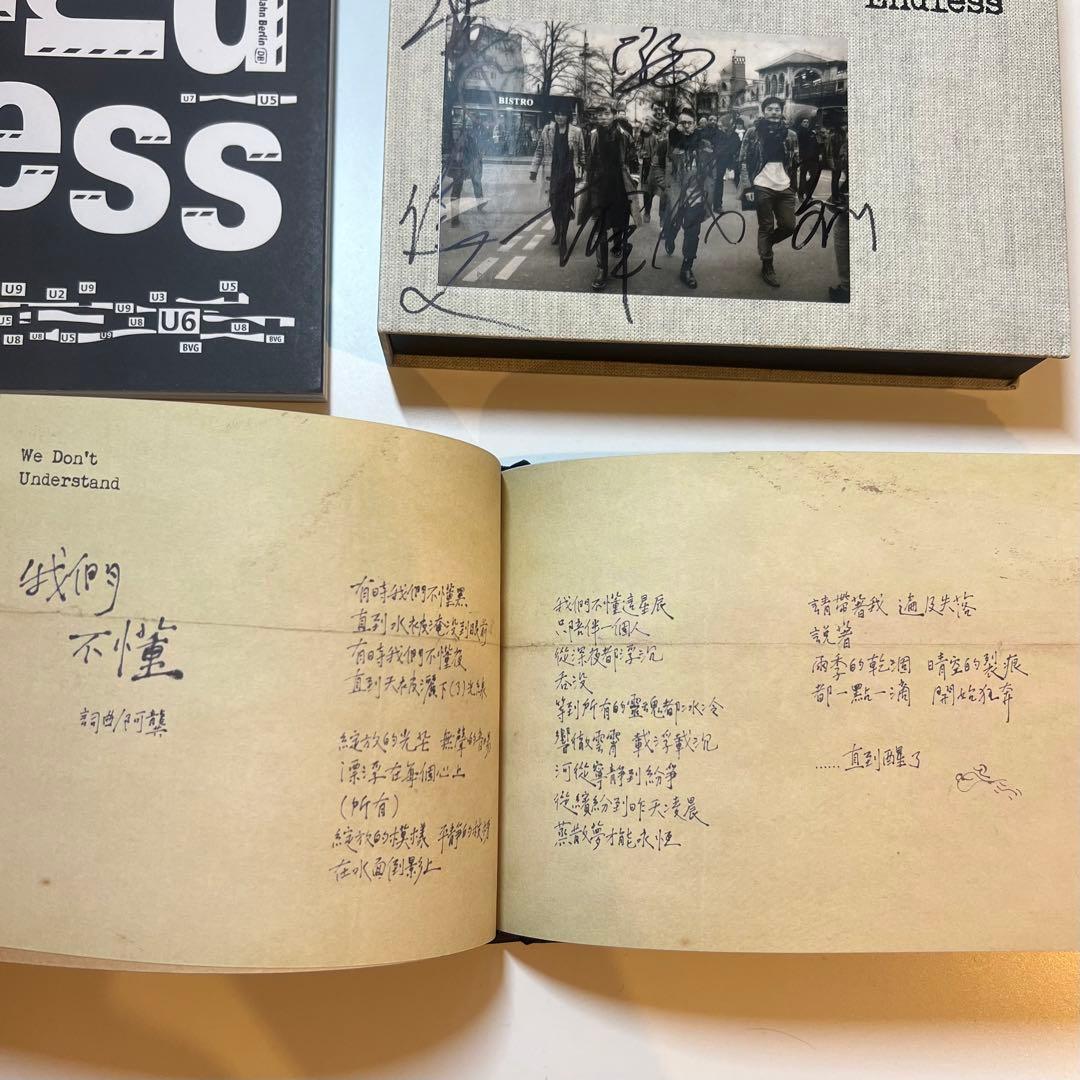 ess
ahn Berlin
DB
U7
U5
U9
U2
U9
U3
U5
U5
U9
U8
U6
U8
U8
U8
U5
U9
BVG
BVG
Endless
BISTRO
We Don't
Understand
我們
不懂
詞曲/阿龔
有時我們不懂黑
直到水底淹没到眼前
有時我們不懂夜
直到天底灑下(了)光線
綻放的光芒 無聲的音
漂浮在每個心上
(所有)
綻放的模樣 平靜的
在水面倒影上
我們不懂這星辰
只陪伴一個人
從深夜都浮沉
吞没
等到所有的靈魂都冰冷
響徹雲霄 載浮載沉
河從寧靜到紛爭
從繽紛到昨天凌晨
蒸散夢才能永恒
請帶著我 遍及失落
說著
雨季的乾涸 晴空的裂痕
都一點一滴 開始狂奔
......直到醒了